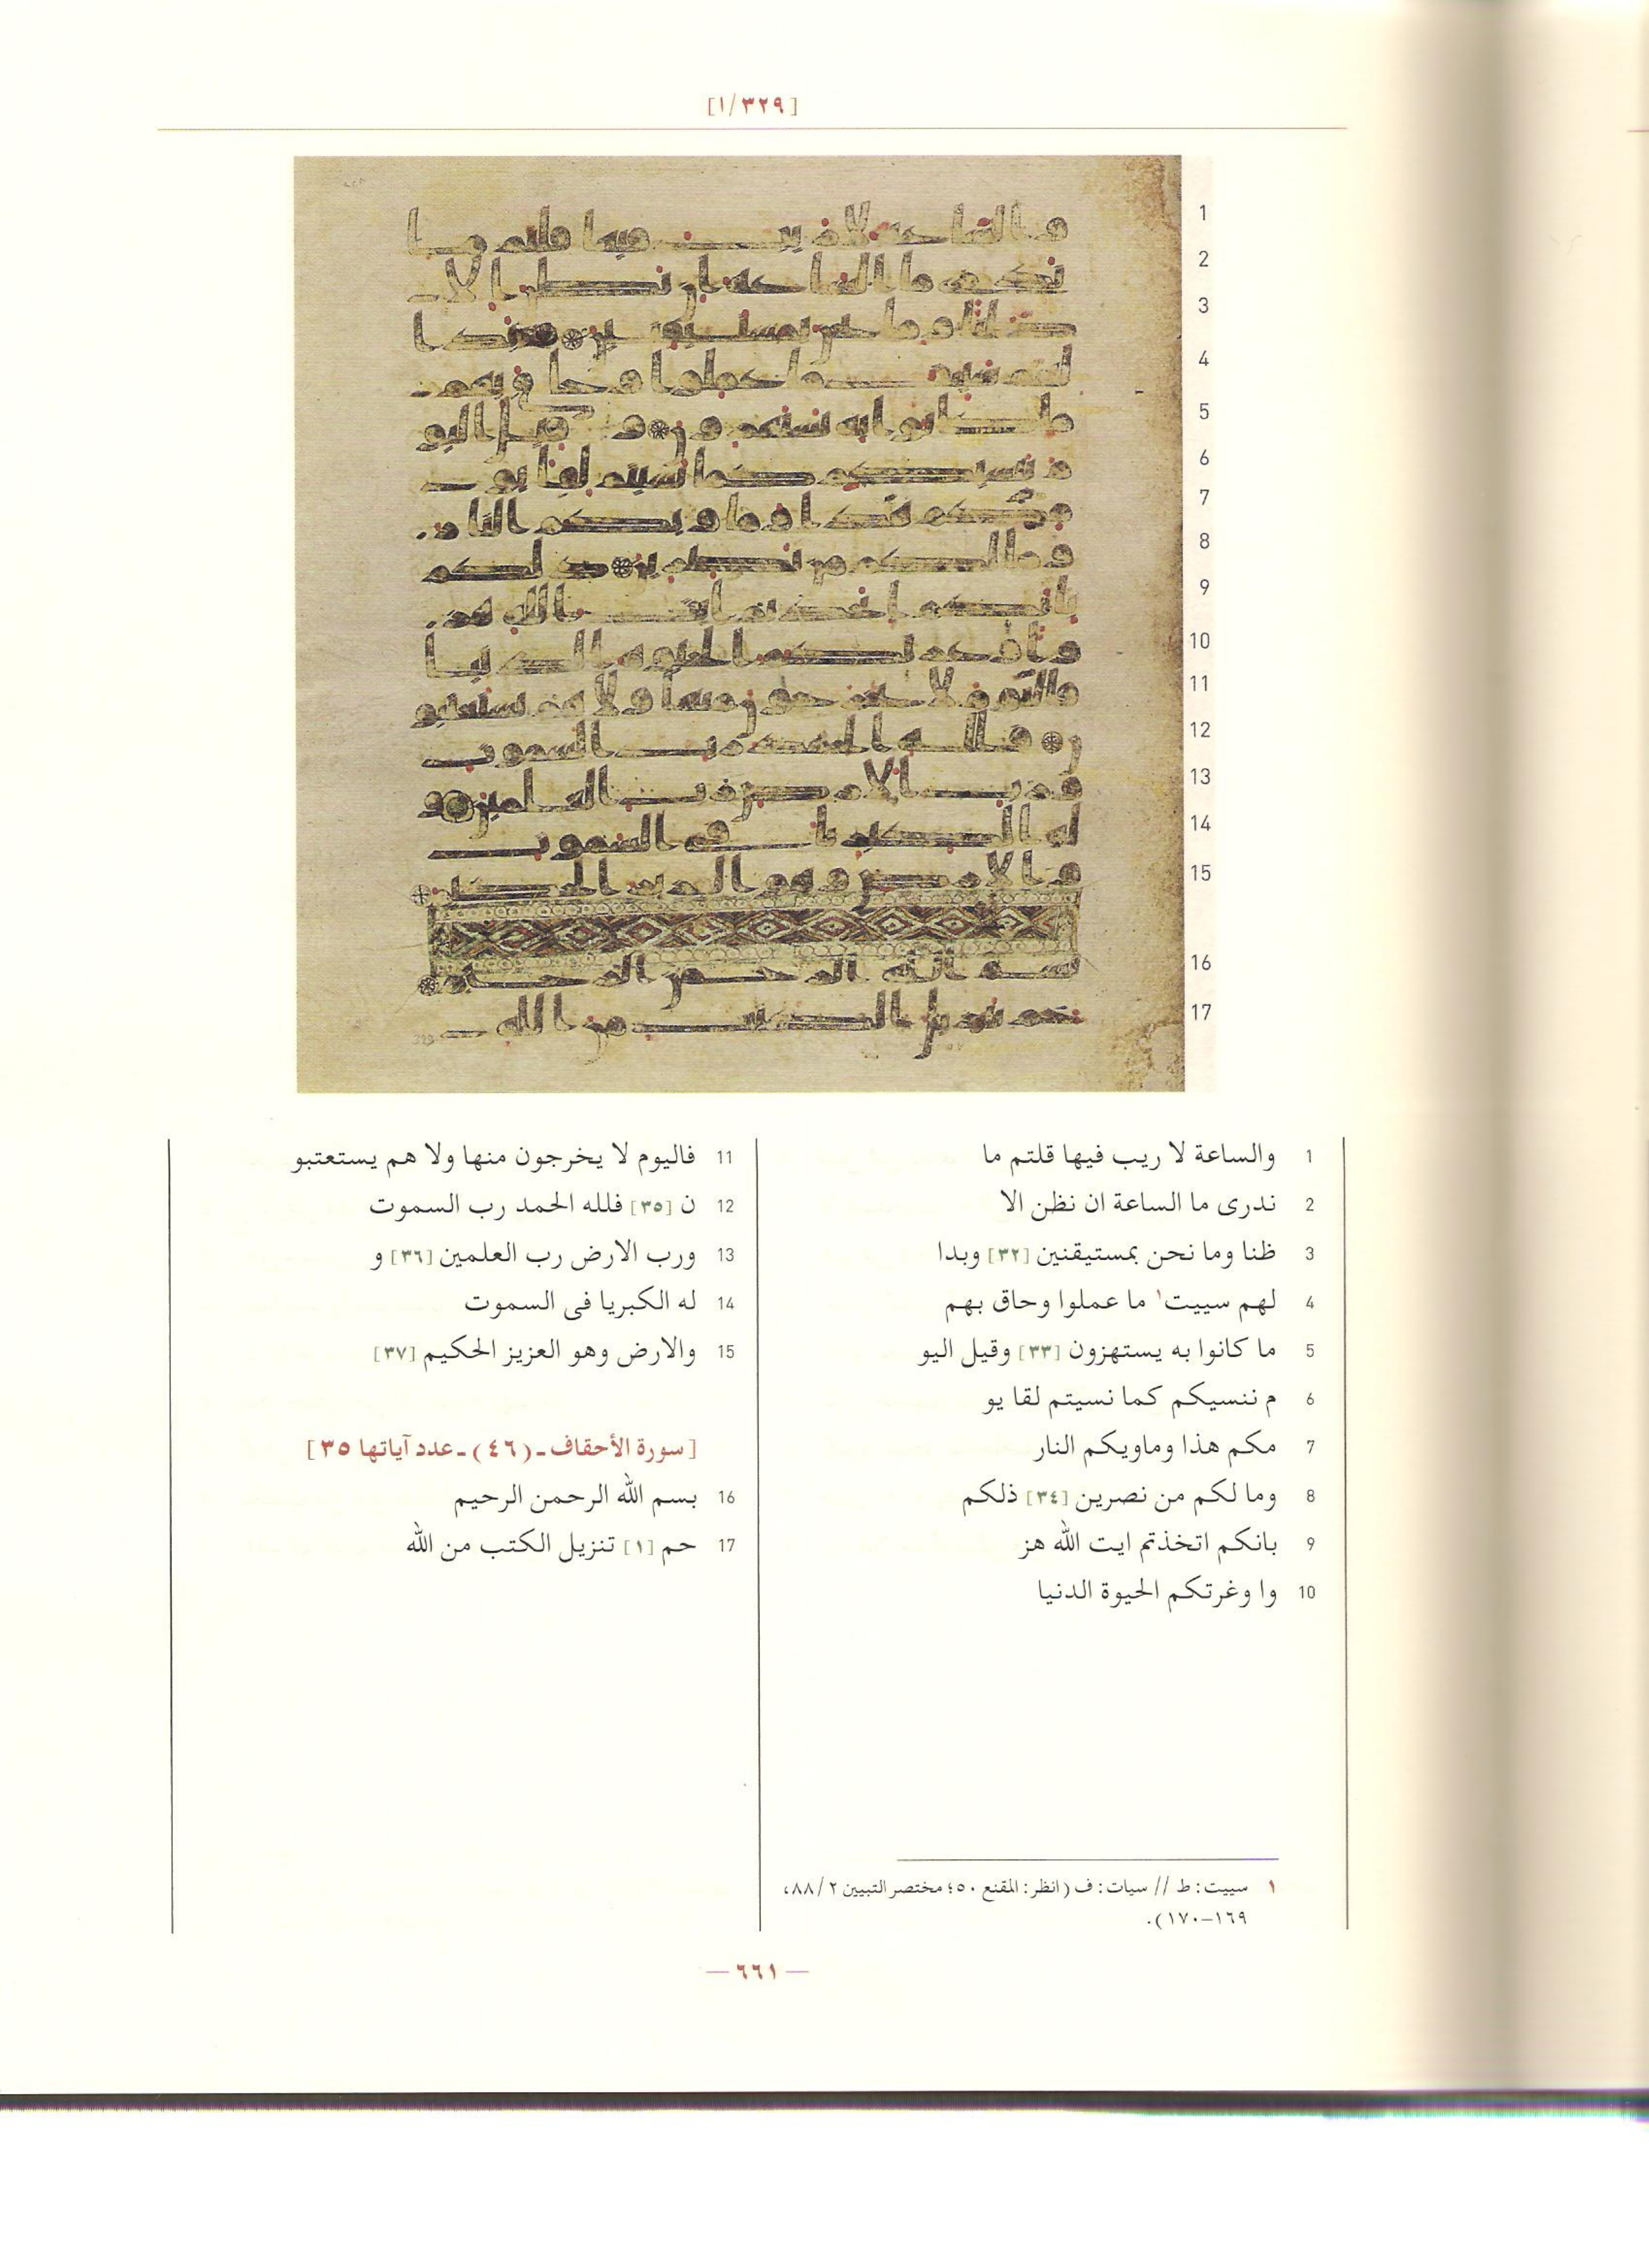 [١/٣٢٩]
1 والساعة لا ريب فيها قلتم ما
2 ندرى ما الساعة ان نظن الا
3 ظنا وما نحن بمستيقنين [٣٢] وبدا
4 لهم سييت١ ما عملوا وحاق بهم
5 ما كانوا به يستهزون [٣٣] وقيل اليو
6 م ننسيكم كما نسيتم لقا يو
7 مكم هذا وماويكم النار
8 وما لكم من نصرين [٣٤] ذلكم
9 بانكم اتخذتم ايت الله هز
10 وا وغرتكم الحيوة الدنيا
11 فاليوم لا يخرجون منها ولا هم يستعتبو
12 ن [٣٥] فلله الحمد رب السموت
13 ورب الارض رب العلمين [٣٦] و
14 له الكبريا فى السموت
15 والارض وهو العزيز الحكيم [٣٧]
[سورة الأحقاف ـ (٤٦) ـ عدد آياتها ٣٥]
16 بسم الله الرحمن الرحيم
17 حم [١] تنزيل الكتب من الله
١ سييت: ط // سيات: ف (انظر: المقنع ٥٠؛ مختصر التبيين ٢/٨٨،
١٦٩–١٧٠).
— ٦٦١ —